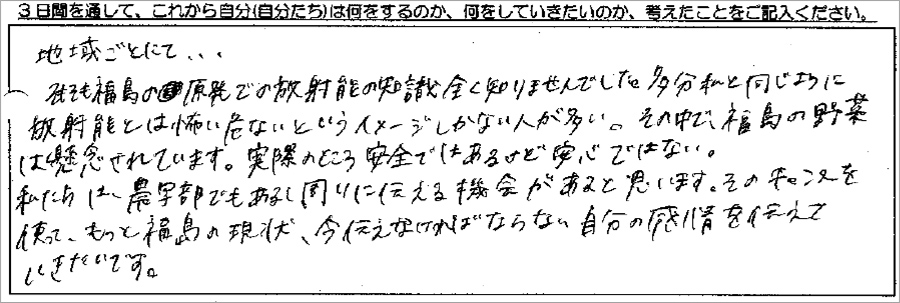 3日間を通して、これから自分(自分たち)は何をするのか、何をしていきたいのか、考えたことをご記入ください。
地域ごとにて...
そもそも福島の原発での放射能の知識全く知りませんでした。多分私と同じように
放射能とは怖い危ないというイメージしかない人が多い。その中で、福島の野菜
は懸念されています。実際のところ安全ではあるけど安心ではない。
私たちは、農学部でもあるし周りに伝える機会があると思います。そのチャンスを
使って、もっと福島の現状、今伝えなければならない自分の感情を伝えて
いきたいです。